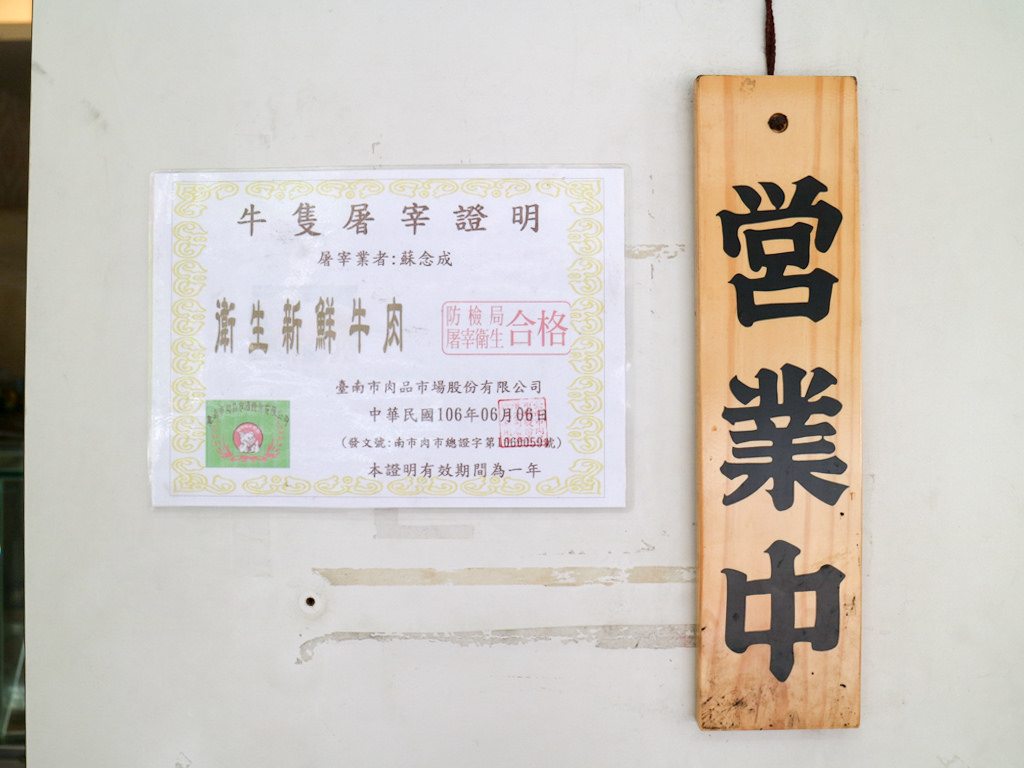 牛隻屠宰證明
屠宰業者:蘇念成
衛生新鮮牛肉
防檢局
屠宰衛生
合格
臺南市肉品市場股份有限公司
中華民國106年06月06日
(發文號:南市肉市總證字第1060059號)
本證明有效期間為一年
営業中